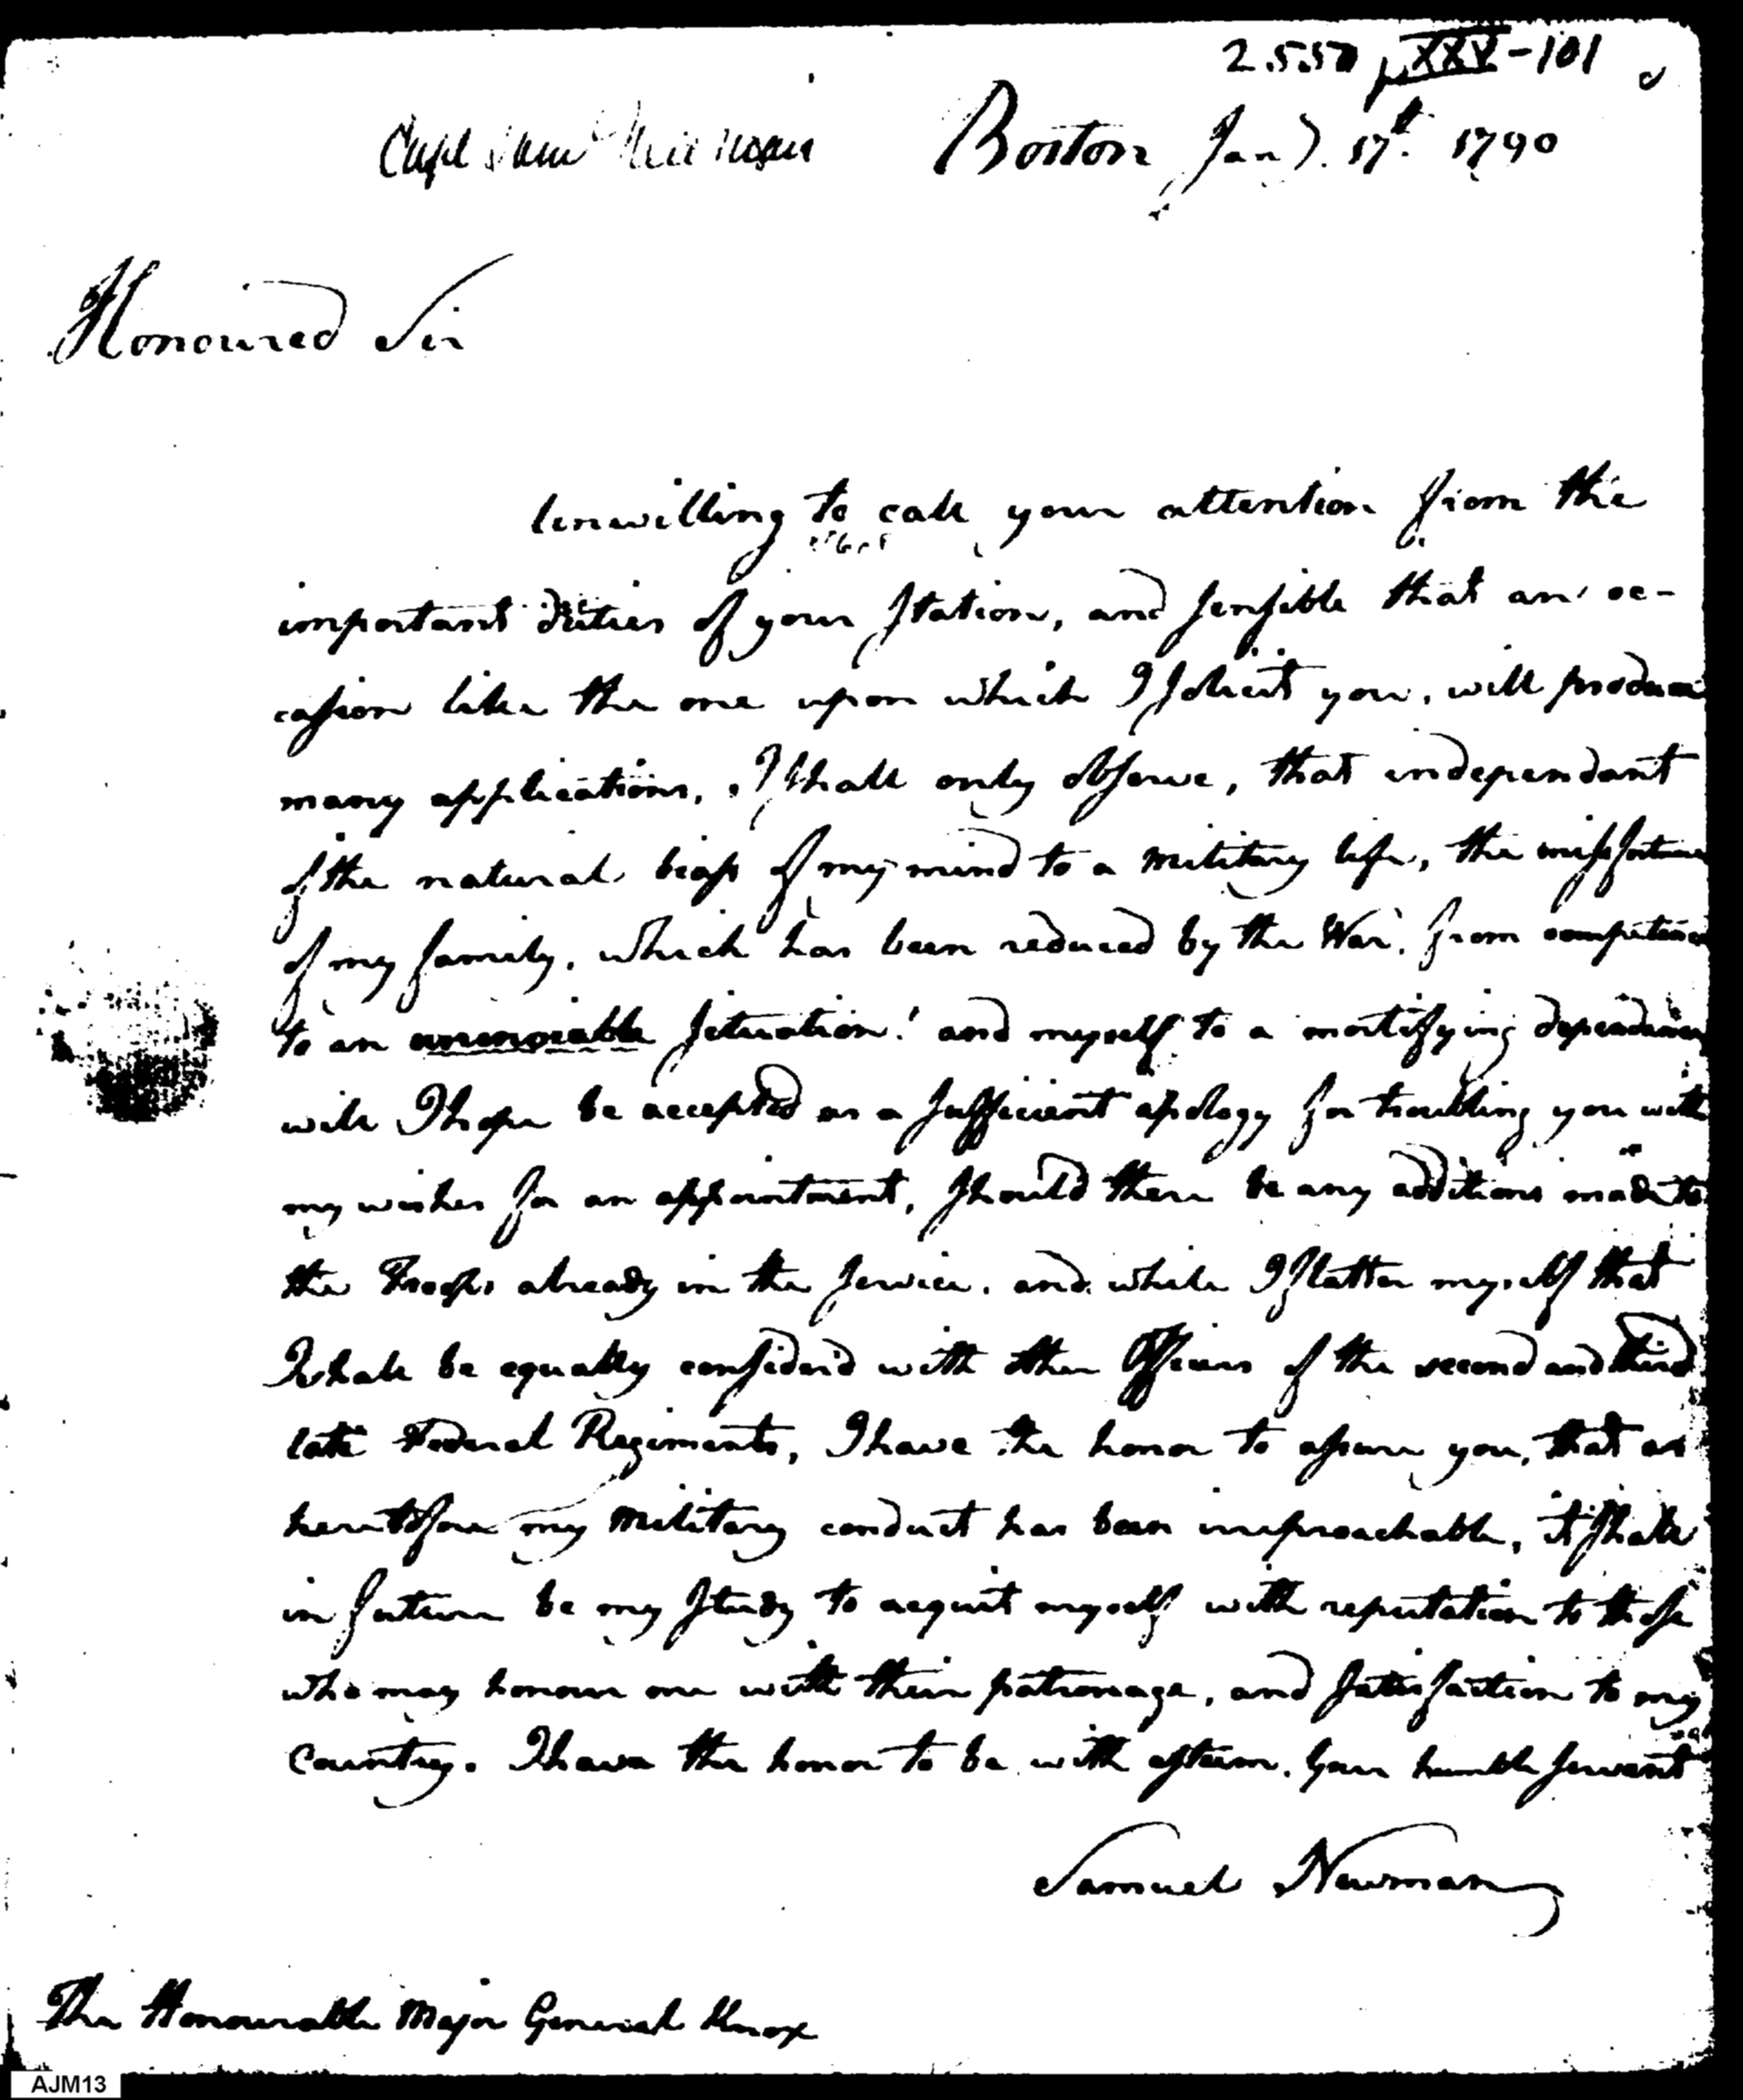 XXV-101
Capt Saml Newman Boston Jany. 17th. 1790
Honoured Sir
Unwilling to call your attention from the
important duties of your Station, and sensible that an oc-
casion like the one upon which I solicit you, will produce
many applications, I shall only observe, that independant
of the natural biass of my mind to a military life, the missfortune
of my family, which has been reduced by the War, from competence
to an unenviable situation! and myself to a mortifying dependance
will I hope be accepted as a sufficient apology for troubling you with
my wishes for an appointment, should there be any additions made to
the Troops already in the service. and while I flatter myself that
I shall be equally considerd with other Officers of the second and third
late Federal Regiments, I have the honor to assure you, that as
heretofore my military conduct has been irreproachable, it shall
in future be my study to acquit myself with reputation to those
who may honour me with their patronage, and satisfaction to my
Country. I have the honor to be with esteem. Your humble servant
Samuel Newman
The Honourable Major General Knox
AJM13